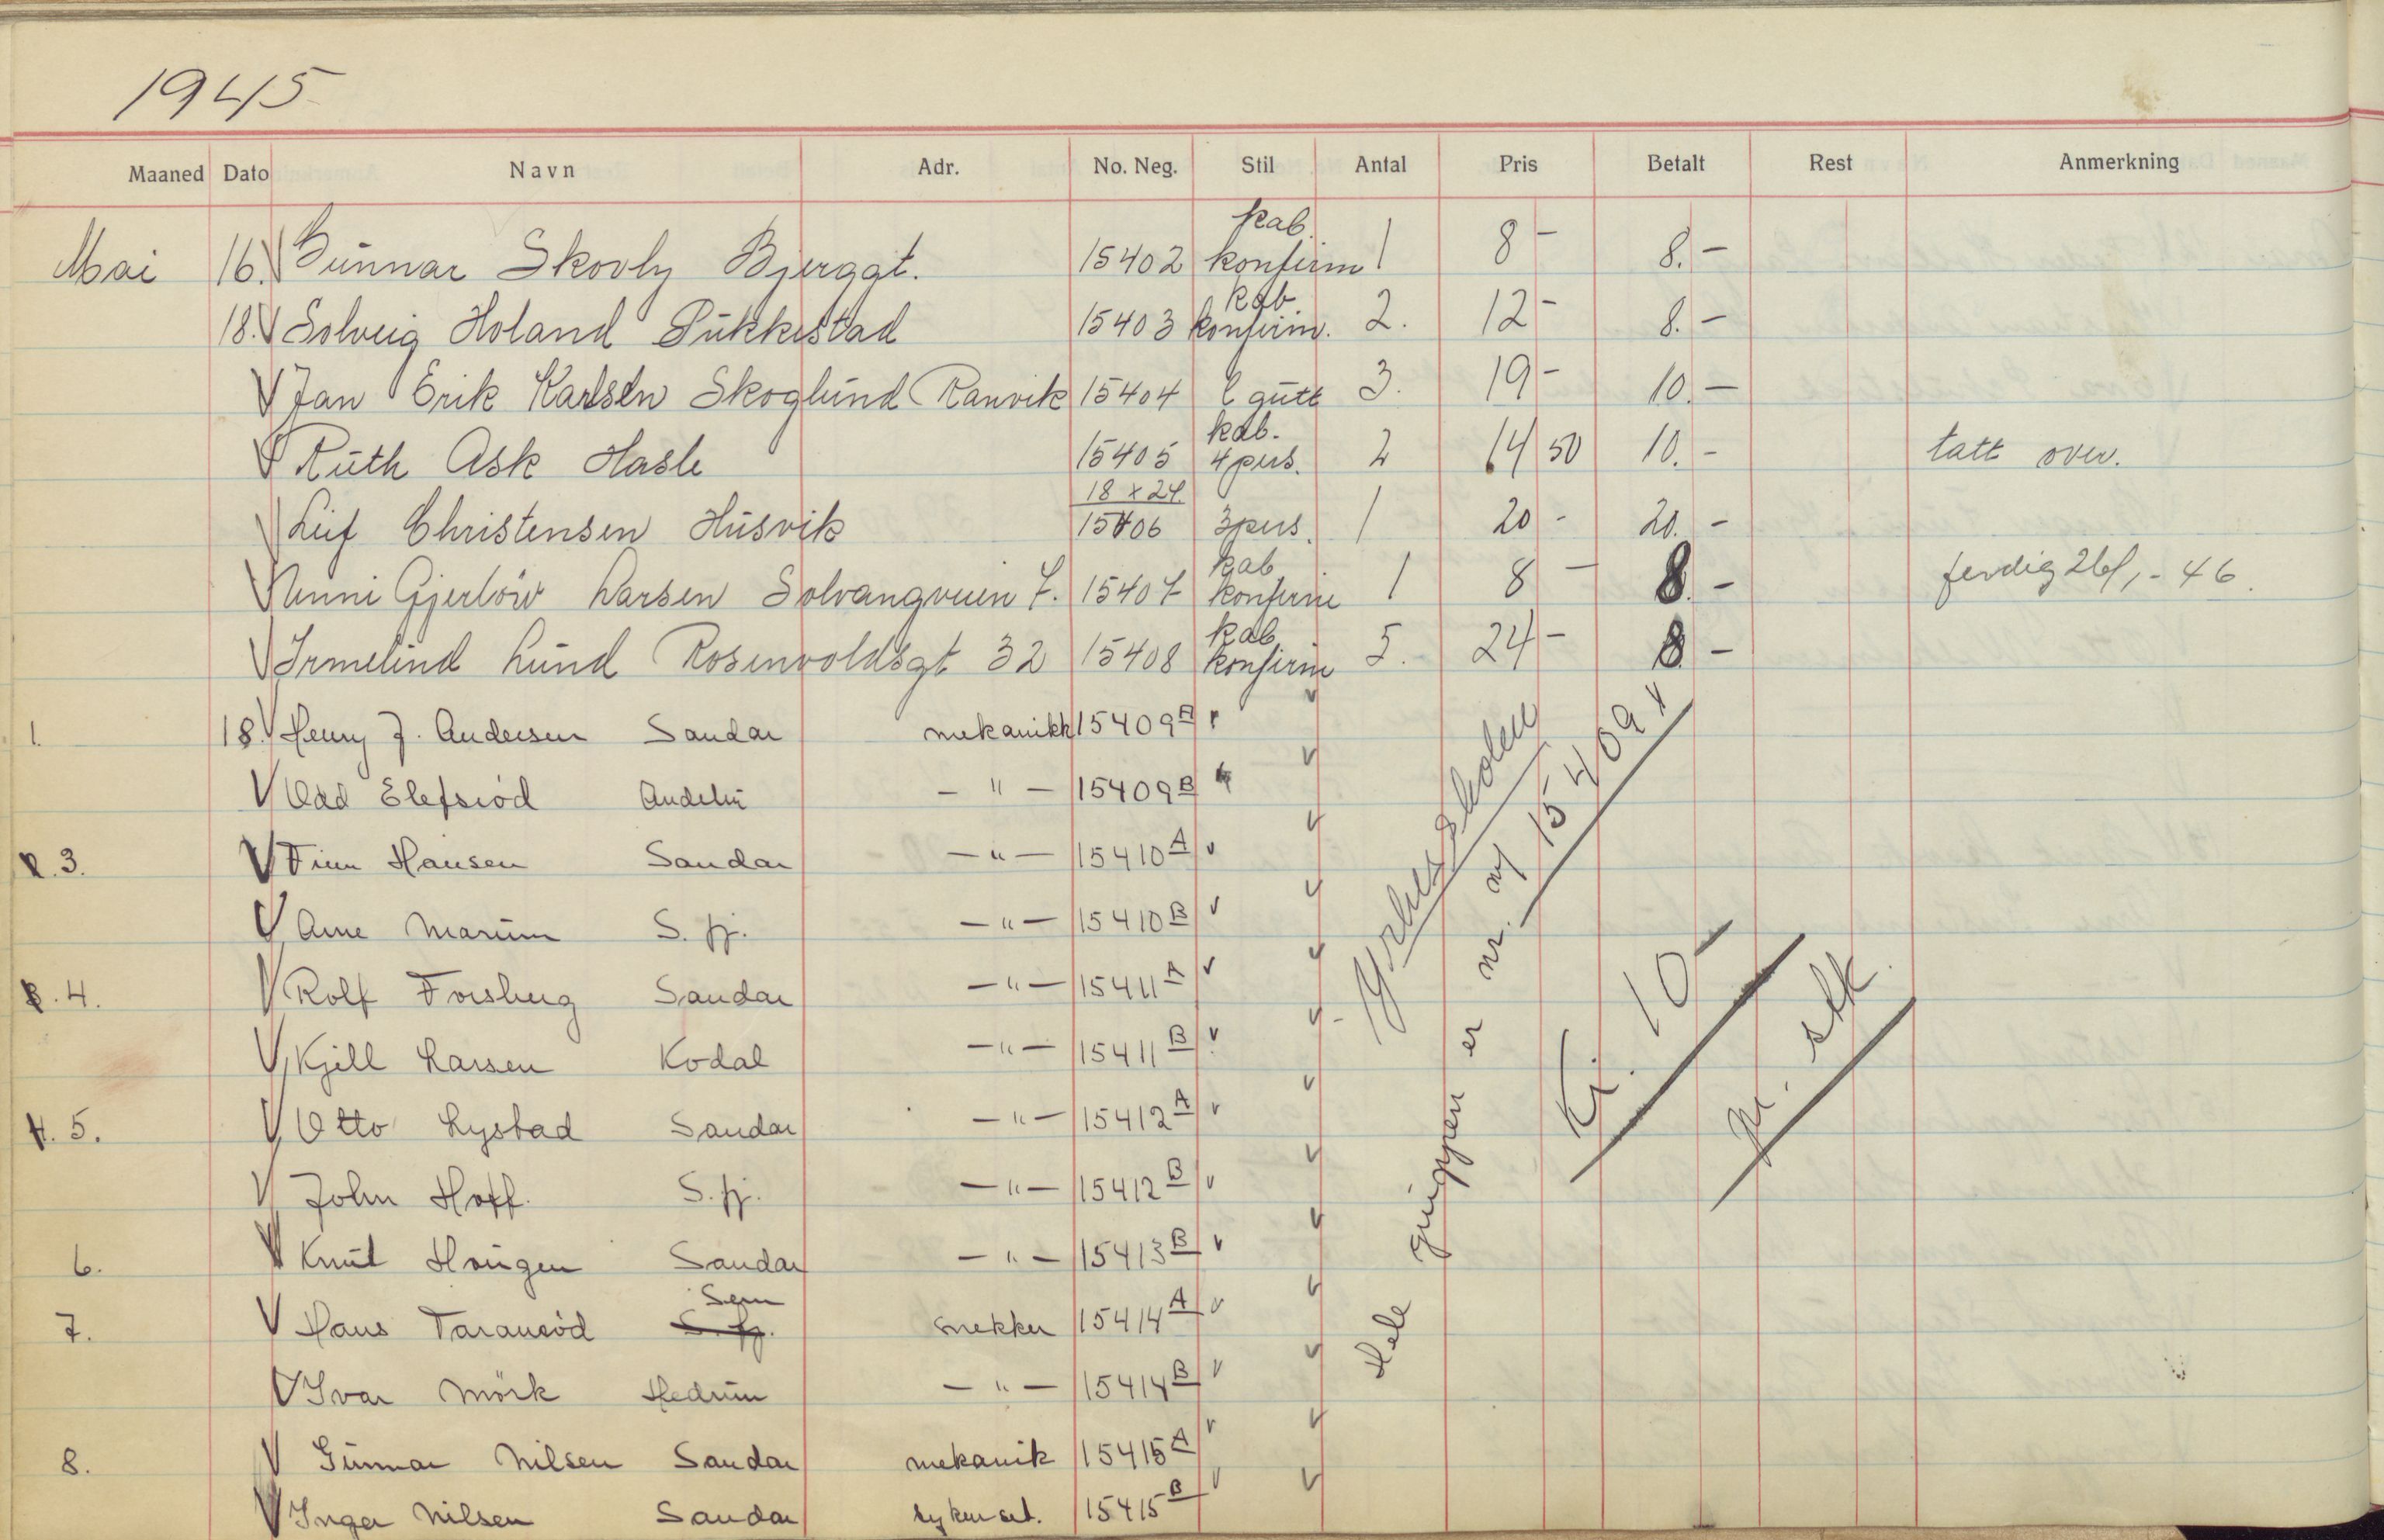 1945
Maaned Dato Navn Adr. No. Neg. Stil Antal Pris Betalt Rest Anmerkning
Mai 16. Gunnar Skovly Bjerggt. 15402 kab. konfirm 1 8 - 8. -
18. Solveig Holand Pukkestad 15403 kab konfirm. 2. 12 - 8. -
Jan Erik Karlsen Skoglund Ranvik 15404 l gutt 3. 19 - 10. -
Ruth Ask Hasle 15405 kab. 4 pers. 2 14 50 10. - tatt over.
Leif Christensen Husvik 18 x 24 15406 3 pers. 1 20 - 20. -
Anni Gjerløw Larsen Solvangveien 7. 15407 kab konfirm 1 8 - 8. - ferdig 26/1 - 46.
Irmelind Lund Rosenvoldsgt 32 15408 kab konfirm 5. 24 - 8 -
1. 18. Henry J. Andersen Sandar mekanikk 15409 A
Odd Elefsröd Andebu - " - 15409 B
3. Finn Hansen Sandar - " - 15410 A
Arne Marum S. fj. - " - 15410 B
4. Rolf Forsberg Sandar - " - 15411 A
Kjell Larsen Kodal - " - 15411 B
5. Otto Lystad Sandar - " - 15412 A
John Hoff. S. fj. - " - 15412 B
6. Knut Haugen Sandar - " - 15413 B
7. Hans Taranröd Sem S. fj. snekker 15414 A
Ivar Mörk Hedrum - " - 15414 B
8. Gunnar Nilsen Sandar mekanik 15415 A
Inger Nilsen Sandar 15415 B
Yrkesskolen
Hele gruppen er nr. 15409 x
Kr. 10 -
pr. stk.